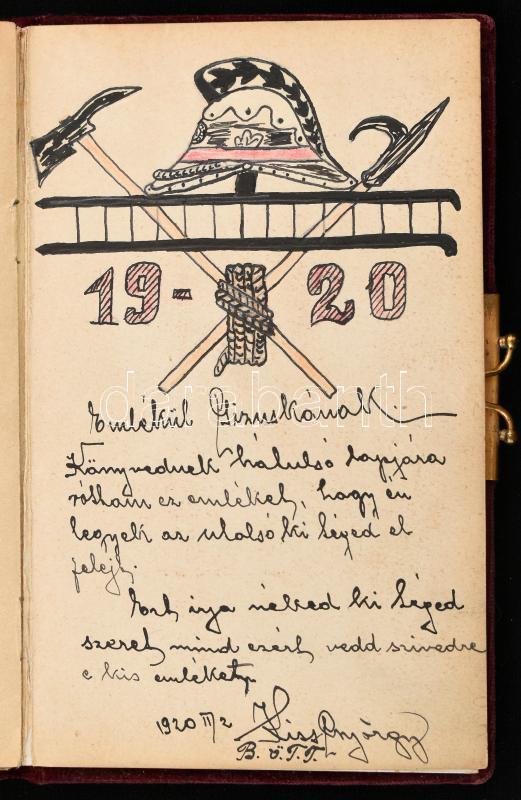 19-20
Emlékül Gizuskának
Könyvednek hátulsó lapjára
róttam ez emléket, hogy én
legyek az utolsó ki téged el
felejt.
Ezt irja néked ki téged
szeret, mind ezért vedd szivedre
e kis emléket
1920 II/2 Kiss György
B. ö. T. T.
darabanth